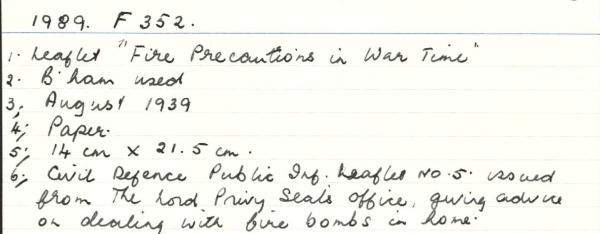 1989. F 352.
1. Leaflet "Fire Precautions in War Time"
2. B'ham used
3; August 1939
4; Paper.
5; 14 cm x 21.5 cm.
6; Civil Defence Public Inf. Leaflet No.5. issued
from The Lord Privy Seals Office, giving advice
on dealing with fire bombs in home.